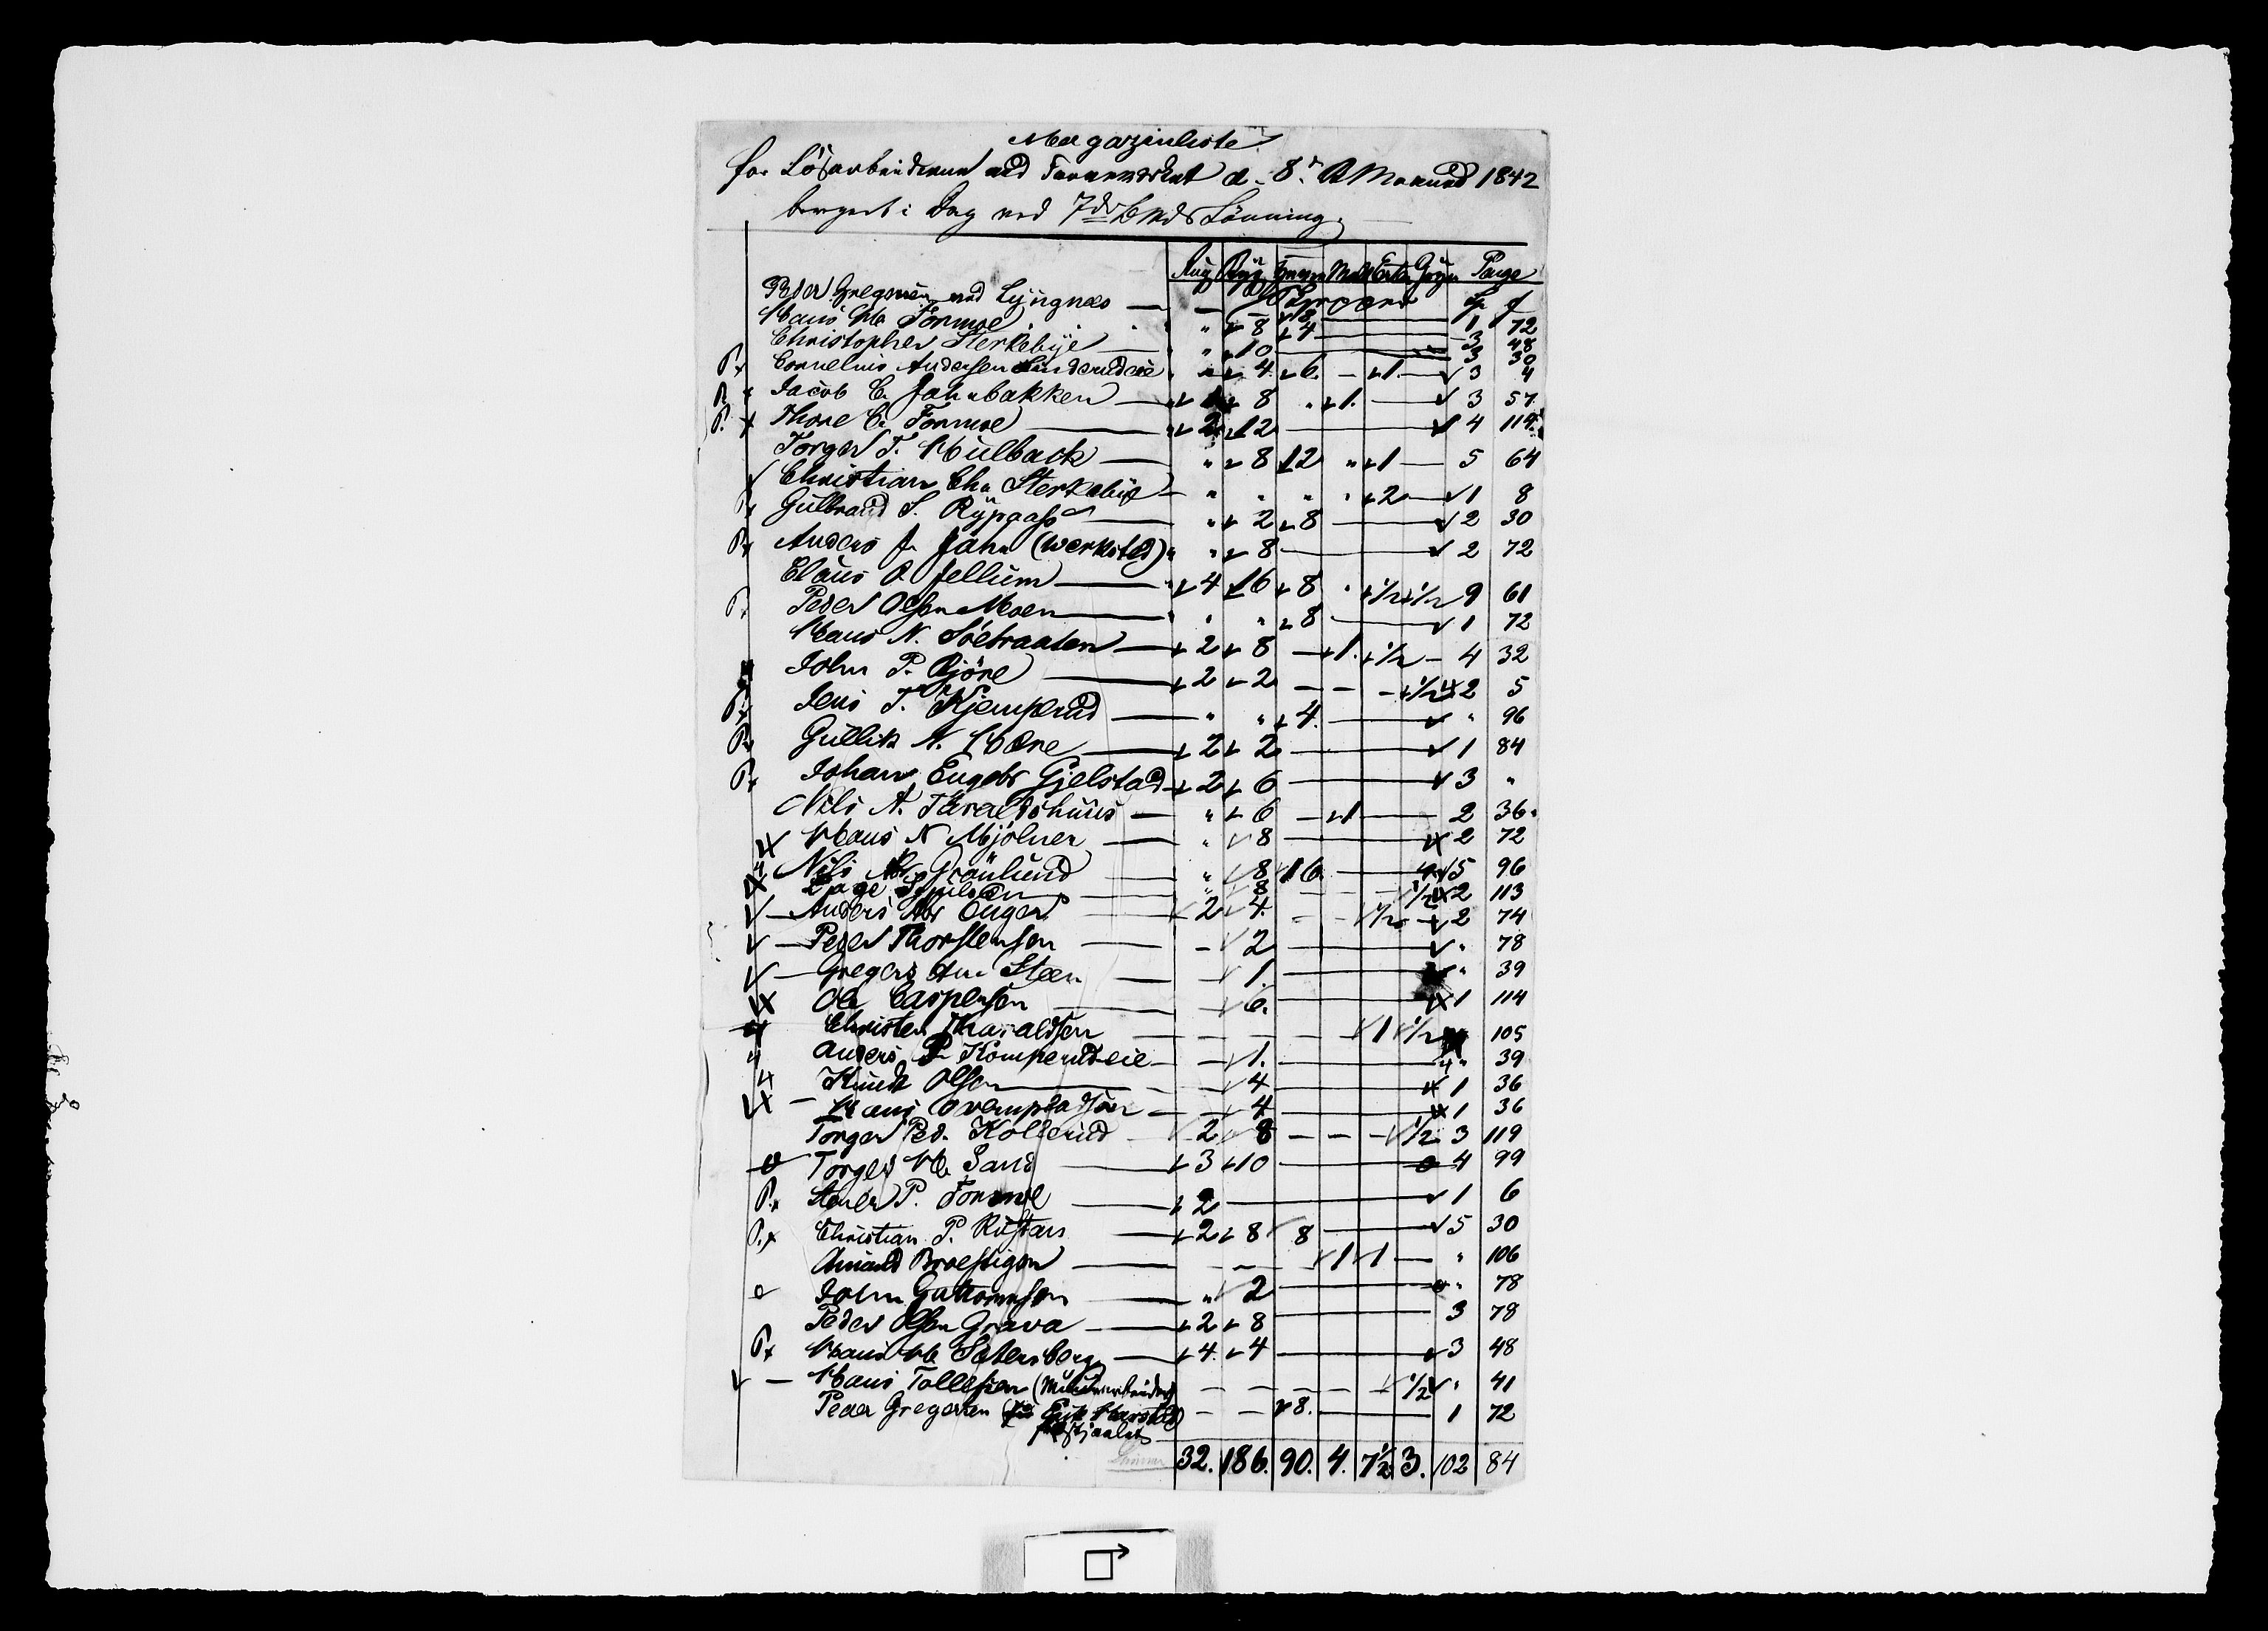 Magazinliste
for Løsarbeiderne ved Farveværket d. 8de B Maaned 1842
berget i Dag ved 7de B Mds Lønning
Rug Byg Havre Malt Erter Gryn Penge
Peder Gregersen ved Lyngnæs — — 8
Hans H. Formoe " 8 4 1 72
Christopher Sterkebye " 10 3 48
Cornelius Andersen Linderudeie " 4 6 — 1 3 4
Jacob C. Jahnbakken 8 " 1 3 57
Thore C. Formoe 2 12 4 119
Torger T. Hulbach " 8 12 " 1 5 64
Christian Chr. Sterkebye " " " " 2 1 8
Gulbrand S. Rypaas " 2 8 2 30
Anders J. Jahn (Werksted) " 8 2 72
Claus O. Jellum 4 16 8 " 1/2 1/2 9 61
P. Peder Olsen Moen " " 8 1 72
Hans N. Söebraaten 2 8 — 1 1/2 — 4 32
John P. Björe 2 2 — — — 1/2 2 5
Jens T. Kjemperud " " 4 " 96
Gullik N. Hære 2 2 1 84
Johan Engebr Gjelstad 2 6 3 "
Nils A. Taraldshuus " 6 — 1 2 36
Hans N Mjölner " 8 2 72
Nils Grönlund " 8 16 5 96
" 8 — — 1/2 2 113
Anders Enger 2 4 — — 1/2 2 74
Peder Thorstensen — 2 " 78
Gregers An. Steen — 1 " 39
Ole Caspersen 6 1 114
Christen Tharaldsen — — — — 1 1/2 105
Anders P. Kömperudeie — 1 " 39
Knudt Olsen 4 1 36
Hans 4 1 36
Torger Ped. Kollerud 2 8 — — — 1/2 3 119
Torger H. Sand 3 10 4 99
P. Stener P. Formoe 2 1 6
P. Christian P. Rustan 2 8 8 5 30
Amund — — — 1 1 — " 106
John Guttormsen " 2 " 78
Peder Olsen Grava 2 8 3 78
P. Hans H. Setersberg 4 4 3 48
Hans Tollefsen — — — — 1/2 " 41
Peder Gregersen — — 8 1 72
32. 186. 90. 4. 7 1/2 3. 102 84